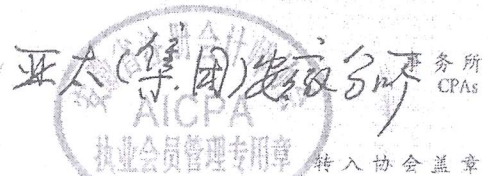 亚太(集团)安徽分所
事务所
CPAs
AICPA
执业会员管理专用章
转入协会盖章